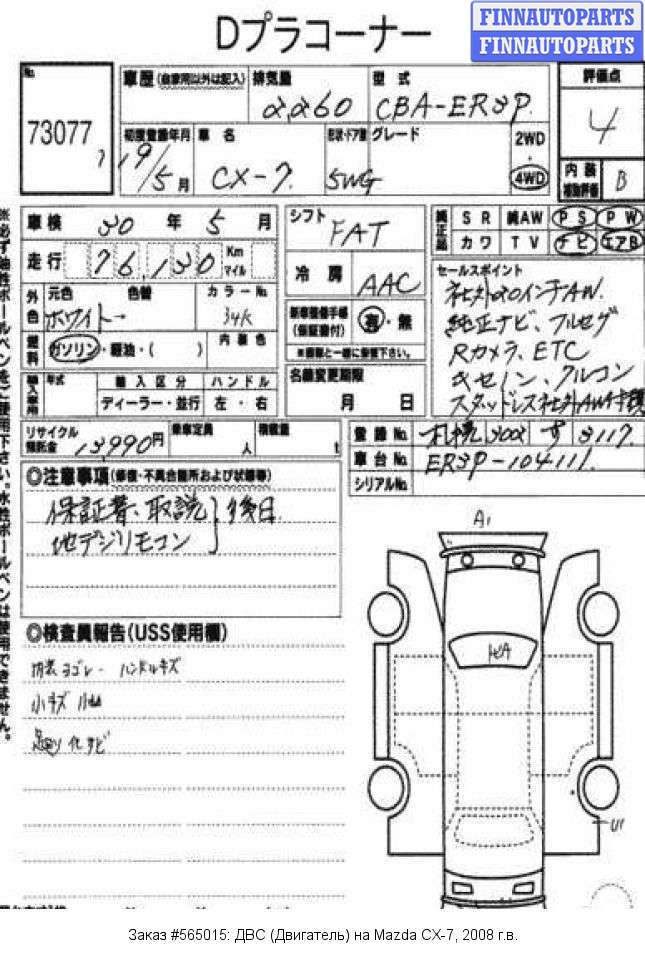 FINNAUTOPARTS
FINNAUTOPARTS
Dプラコーナー
No.
73077
車歴(自家用以外は記入)
排気量
2,260
型式
CBA-ER3P
評価点
4
初度登録年月
19/5月
車名
CX-7
形状・ドア数
5WG
グレード
2WD
・
4WD
内装
補助評価
B
車検 30年5月
走行 76,130 Km マイル
シフト
FAT
冷房
AAC
純正品
SR 純AW PS PW
カワ TV ナビ エアB
外色
元色
ホワイト→
色替
カラーNo.
34K
燃料
ガソリン・軽油・( )
内装色
輸入車用
年式
輸入区分
ディーラー・並行
ハンドル
左・右
新車整備手帳
(保証書付)
有・無
※書類と一緒に管理下さい。
名義変更期限
月 日
セールスポイント
社外20インチAW.
純正ナビ、フルセグ
Rカメラ、ETC
キセノン、クルコン
スタッドレス社外AW4本積
リサイクル
預託金
13,990円
乗車定員
人
積載量
t
登録No. 札幌 300 す 3117
車台No. ER3P-104111
シリアルNo.
◎注意事項(修復・不具合箇所および状態等)
保証書、取説 後日
地デジリモコン
◎検査員報告(USS使用欄)
内装ヨゴレ- ハンドルキズ
小キズ
サビ
A1
U1
※必ず油性ボールペンをご使用下さい。水性ボールペンは使用できません。
Заказ #565015: ДВС (Двигатель) на Mazda CX-7, 2008 г.в.